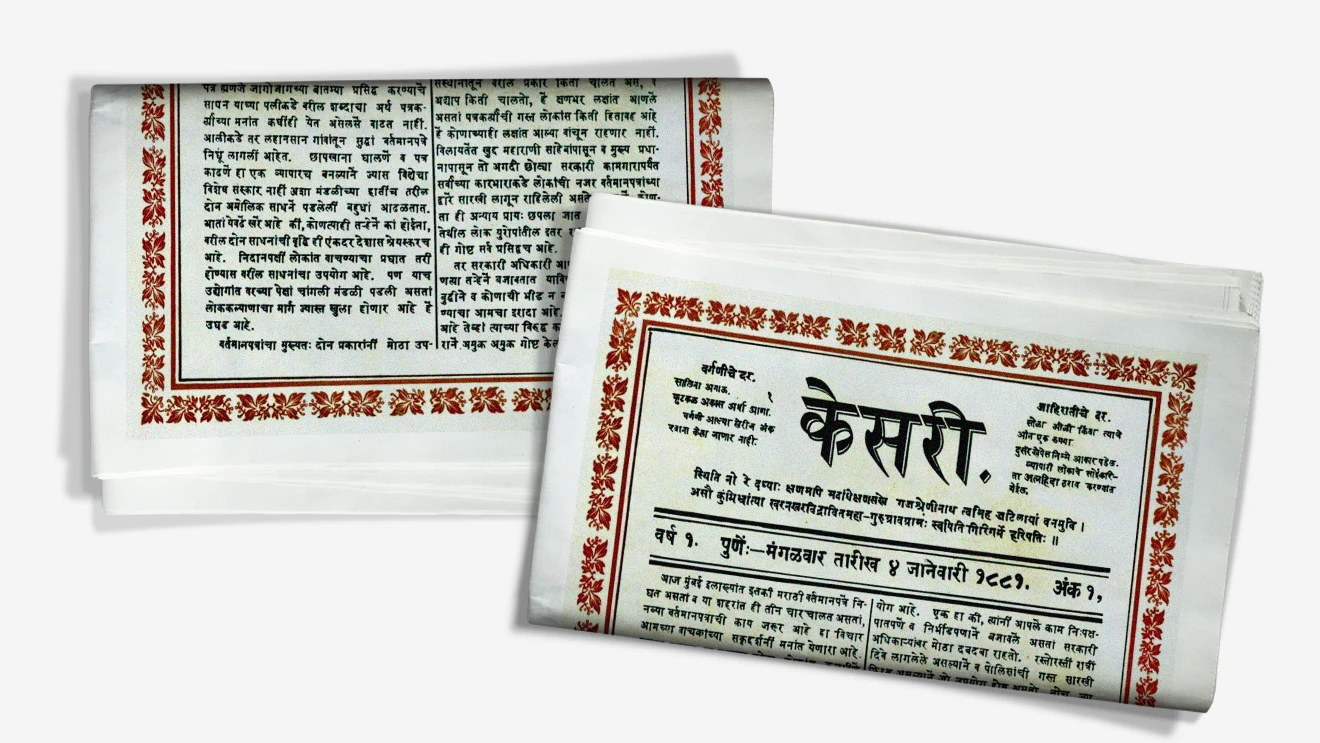 पत्र ह्मणजे जागोजागच्या बातम्या प्रसिद्ध करण्याचें
साधन याच्या पलीकडे वरील शब्दाचा अर्थ पत्रक-
र्त्यांच्या मनांत कधींही येत असेलसें वाटत नाहीं.
अलीकडे तर लहानसान गांवांतून सुद्धां वर्तमानपत्रें
निघूं लागलीं आहेत. छापखाना घालणें व पत्र
काढणें हा एक व्यापारच बनल्यानें ज्यास विद्येचा
विशेष संस्कार नाहीं अशा मंडळीच्या हातींच वरील
दोन अमोलिक साधनें पडलेलीं बहुधां आढळतात.
आतां येवढें खरें आहे कीं, कोणत्याही तऱ्हेनें कां होईना,
वरील दोन साधनांची वृद्धि ही एकंदर देशास श्रेयस्करच
आहे. निदानपक्षीं लोकांत वाचण्याचा प्रघात तरी
होण्यास वरील साधनांचा उपयोग आहे. पण याच
उद्योगांत वरच्या पेक्षां चांगली मंडळी पडली असतां
लोककल्याणाचा मार्ग ज्यास्त खुला होणार आहे हें
उघड आहे.
वर्तमानपत्रांचा मुख्यतः दोन प्रकारांनीं मोठा उप-
संस्थानांतून वरील प्रकार किती चालत असे, व
अद्याप किती चालतो, हें क्षणभर लक्षांत आणलें
असतां पत्रकर्त्यांची गस्त लोकांस किती हितावह आहे
हें कोणाच्याही लक्षांत आल्या वांचून राहणार नाहीं.
विलायतेंत खुद्द महाराणी साहेबांपासून व मुख्य प्रधा-
नापासून तों अगदीं छोट्या सरकारी कामगारापर्यंत
सर्वांच्या कारभाराकडे लोकांची नजर वर्तमानपत्रांच्या
द्वारें सारखी लागून राहिलेली असते
ता ही अन्याय प्रायः छपला जात
तेथील लोक युरोपांतील इतर
ही गोष्ट सर्व प्रसिद्धच आहे.
तर सरकारी अधिकारी
णत्या तऱ्हेनें बजावतात
बुद्धीनें व कोणाची भीड न
ण्याचा आमचा इरादा आहे.
आहे तेव्हां त्याच्या विरुद्ध
रानें अमुक अमुक गोष्ट
वर्गणीचे दर.
सालिना अगाऊ. १
फुटकळ अंकास अर्धा आणा.
वर्गणी आल्या खेरीज अंक
रवाना केला जाणार नाहीं.
केसरी.
जाहिरातीचे दर.
सोळा ओळी किंवा त्याचे
आंत एक रुपया.
दुसरे खेपेस निम्मे आकार पडेल.
व्यापारी लोकांचे सोईकरि-
तां अलाहिदा ठराव करण्यांत
येईल.
स्थितिं नो रे दध्याः क्षणमपि मदांधेक्षणसखे गजश्रेणीनाथ त्वमिह जटिलायां वनभुवि ।
असौ कुंभिभ्रांत्या खरनखरविद्रावितमहा-गुरुग्रावग्रामः स्वपिति गिरिगर्भे हरिपतिः ॥
वर्ष १. पुणें:—मंगळवार तारीख ४ जानेवारी १८८१. अंक १,
आज मुंबई इलाख्यांत इतकीं मराठी वर्तमानपत्रें नि-
घत असतां व या शहरांत ही तीन चार चालत असतां,
नव्या वर्तमानपत्राची काय जरूर आहे हा विचार
आमच्या वाचकांच्या सकृद्दर्शनीं मनांत येणारा आहे.
योग आहे. एक हा कीं, त्यांनीं आपलें काम निःपक्ष-
पातपणें व निर्भीडपणानें बजावलें असतां सरकारी
अधिकाऱ्यांवर मोठा दबदबा राहतो. रस्तोरस्तीं रात्रीं
दिवे लागलेले असल्यानें व पोलिसांची गस्त सारखी